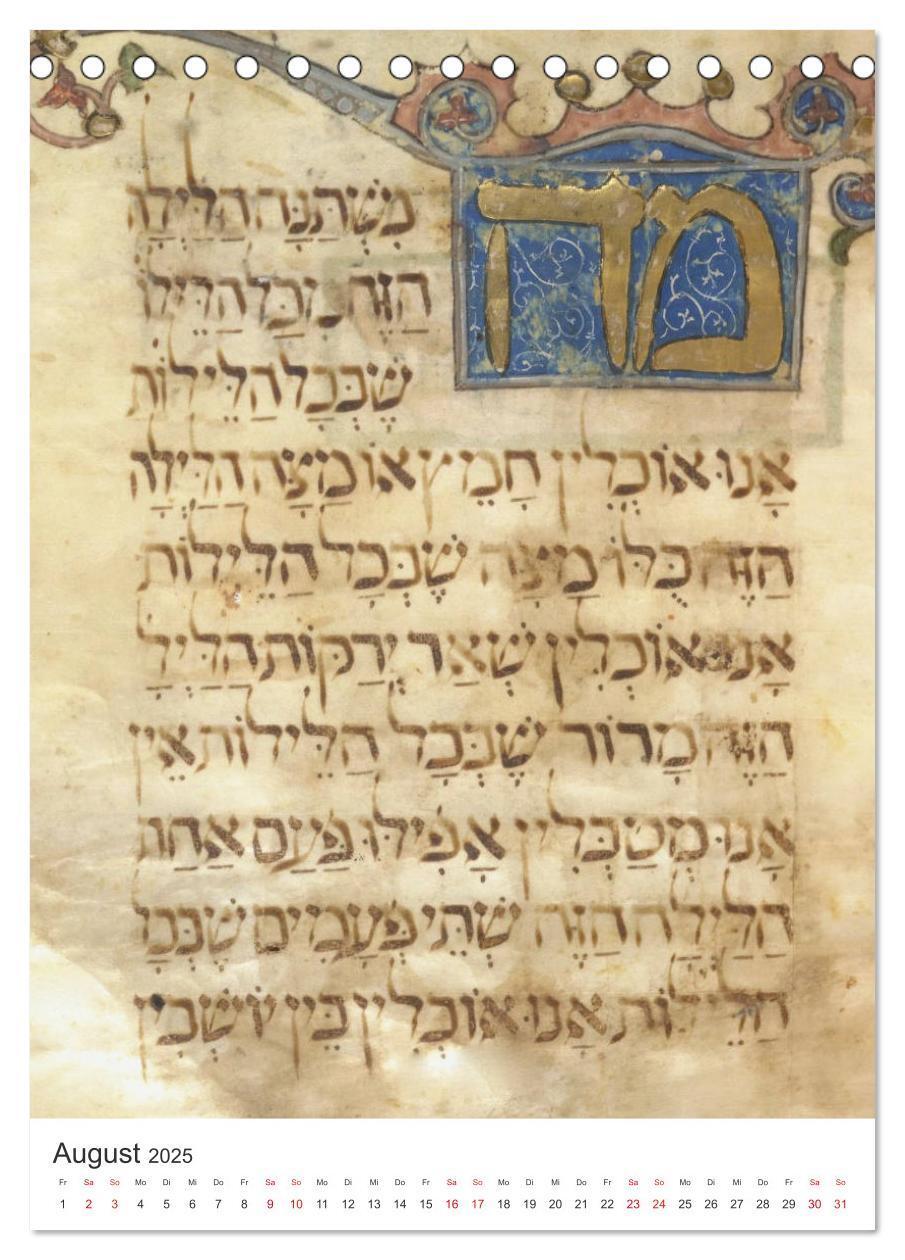 מה
מִשְׁתַּנָּה הַלַּיְלָה
הַזֶּה מִכָּל הַלֵּילוֹ
שֶׁבְּכָל הַלֵּילוֹת
אָנוּ אוֹכְלִין חָמֵץ אוֹ מַצָּה הַלַּיְלָה
הַזֶּה כֻּלּוֹ מַצָּה שֶׁבְּכָל הַלֵּילוֹת
אָנוּ אוֹכְלִין שְׁאַר יְרָקוֹת הַלַּיְלָ
הַזֶּה מָרוֹר שֶׁבְּכָל הַלֵּילוֹת אֵין
אָנוּ מְטַבְּלִין אֲפִילּוּ פַּעַם אַחַת
הַלַּיְלָה הַזֶּה שְׁתֵּי פְּעָמִים שֶׁבְּכָל
הַלֵּילוֹת אָנוּ אוֹכְלִין בֵּין יוֹשְׁבִין
August 2025
Fr Sa So Mo Di Mi Do Fr Sa So Mo Di Mi Do Fr Sa So Mo Di Mi Do Fr Sa So Mo Di Mi Do Fr Sa So
1 2 3 4 5 6 7 8 9 10 11 12 13 14 15 16 17 18 19 20 21 22 23 24 25 26 27 28 29 30 31